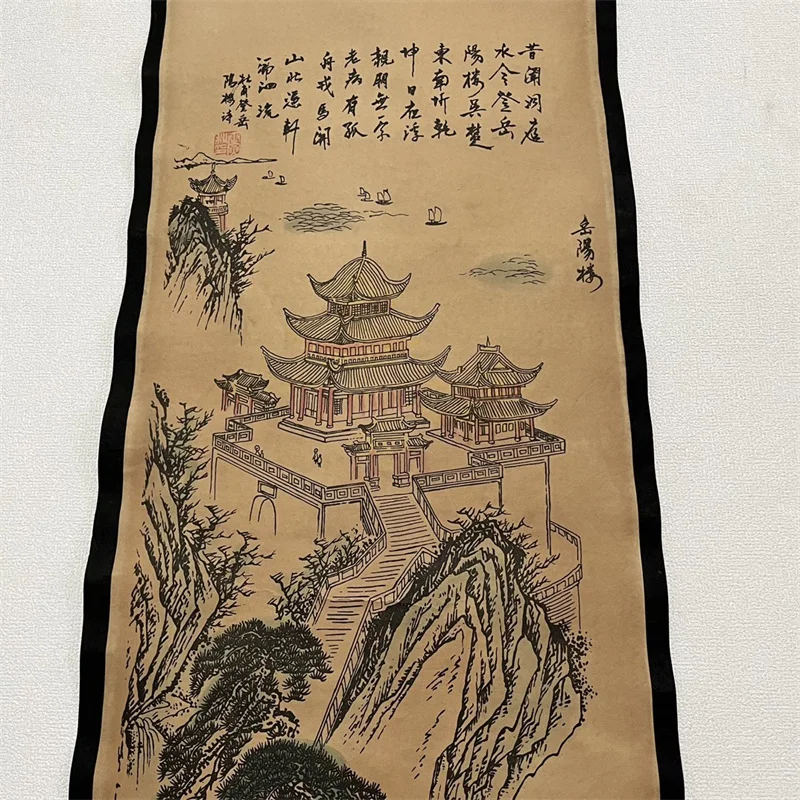 昔聞洞庭
水今登岳
陽楼吳楚
東南坼乾
坤日夜浮
親朋無一字
老病有孤
舟戎馬関
山北憑軒
涕泗流
杜甫登岳
陽楼詩
岳陽楼